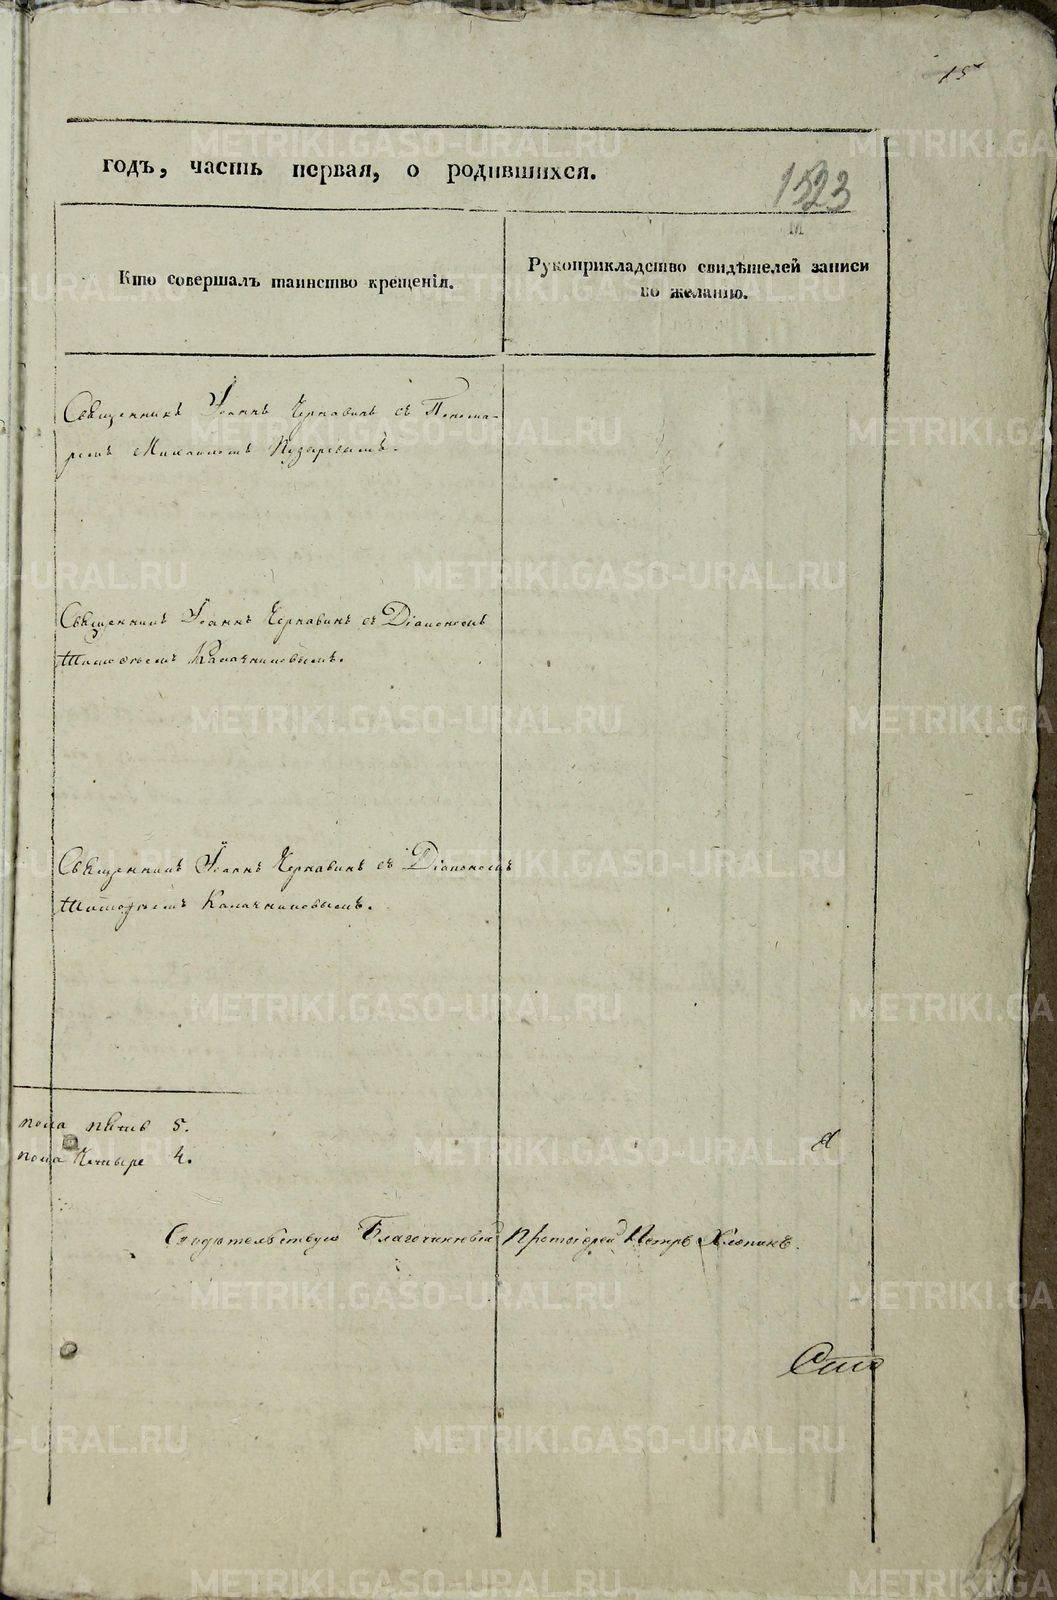 15
годъ, часть первая, о родившихся.
1523
Кто совершалъ таинство крещенія.
Рукоприкладство свидѣтелей записи
по желанію.
Священникъ Іоаннъ Чернавинъ съ Понома-
ремъ Михаиломъ Пузыревымъ.
Священникъ Іоаннъ Чернавинъ съ Діакономъ
Калачниковымъ.
Священникъ Іоаннъ Чернавинъ съ Діакономъ
Калачниковымъ.
пола пять 5.
пола четыре 4.
Свидѣтельствую Благочинный Протоіерей Петръ Хлопинъ.
METRIKI.GASO-URAL.RU